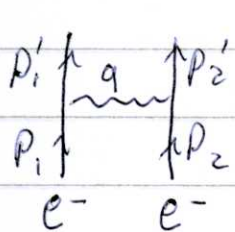 P₁' q P₂'
P₁ P₂
e⁻ e⁻